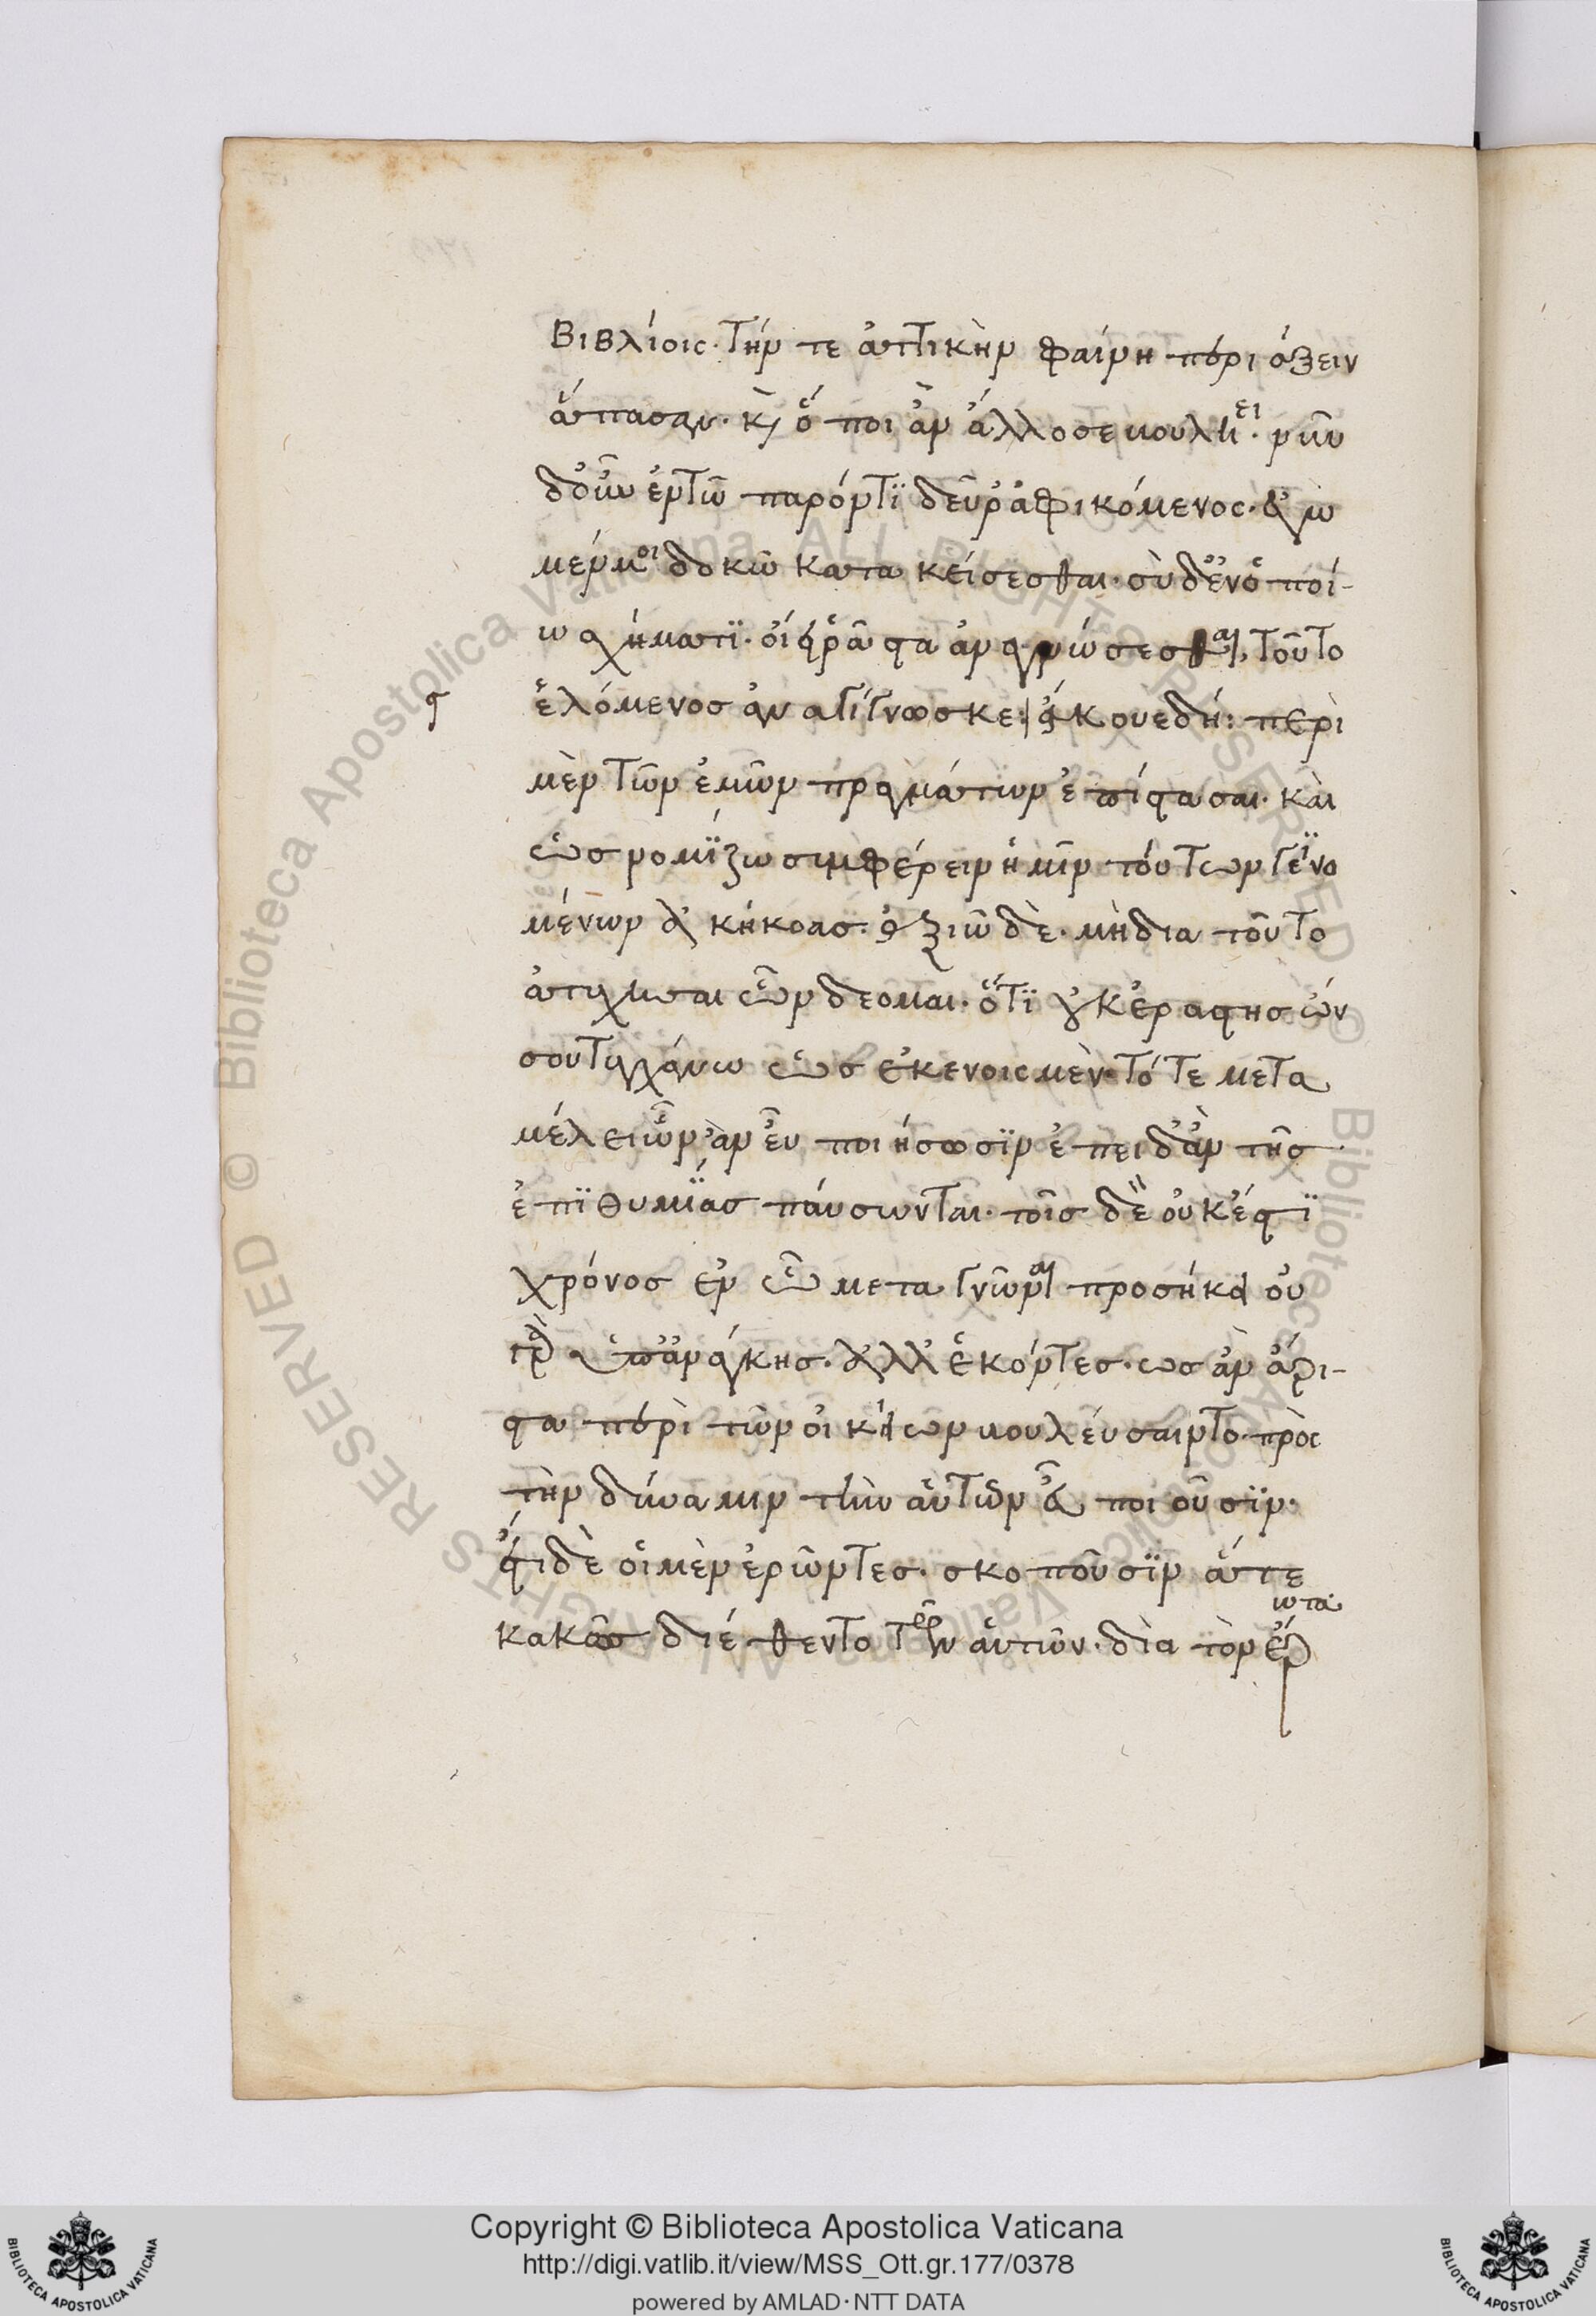 βιβλίοις· τήν τε ἀττικὴν φαίνη περιάξειν
ἅπασαν· κ ὅποι ἂν ἄλλοσε βουλῆ ει· νῦν
δ' οὖν ἐν τῶ παρόντϊ δεῦρ' ἀφικόμενος· ἐγὼ
μέν μοι δοκῶ κατακείσεσθαι· σὺ δ' ἐν ὁποί-
ω σχήματϊ· οἴει ῥᾶστα ἀναγνώσεσθαι, τοῦτο
ἑλόμενος ἀναγίγνωσκε: ἄκουε δή: περὶ
μὲν τῶν ἐμῶν πραγμάτων ἐπίστασαι· καὶ
ὡς νομΐζω συμφέρειν ἡμῖν τούτων γενο
μένων ἀκήκοας· ἀξιῶ δὲ· μὴ δια τοῦτο
ἀτυχῆσαι ὧν δεομαι· ὅτϊ οὐκ ἐραστης ὤν
σου τυγχάνω ὡς ἐκενοις μὲν· τότε μετα
μέλει ὧν ἂν εὖ ποιήσωσϊν ἐπειδ' ἂν τῆς
ἐπϊθυμΐας παύσωνται· τοῖς δὲ οὐκ ἔστϊ
χρόνος ἐν ὧ μεταγνῶναι προσήκει οὐ
γὰρ ὑπ' ἀνάγκης· ἀλλ' ἑκόντες· ως ἂν ἄρι-
στα περὶ τῶν οἰκείων βουλεύσαιντο· πρὸς
τὴν δύναμιν τὴν αὑτῶν εὖ ποιοῦσϊν·
ἔτι δὲ οἱ μὲν ἐρῶντες· σκοποῦσϊν ἅ τε
κακῶς διέθεντο τῶν αὑτῶν· δὶα τὸν ἔρ
ωτα
Copyright © Biblioteca Apostolica Vaticana
http://digi.vatlib.it/view/MSS_Ott.gr.177/0378
powered by AMLAD·NTT DATA
BIBLIOTECA APOSTOLICA VATICANA
BIBLIOTECA APOSTOLICA VATICANA